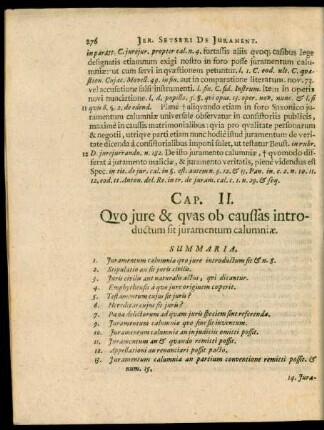 276 JER. SETSERI DE JURAMENT.
imparatt. C. jurejur. propter cal. n. 9. fortassis aliis quoq; casibus lege
designatis etiamnum exigi nostro in foro posse juramentum calum-
niæ: ut cum servi in quæstionem petuntur. l. 1. C. eod. ult. C. quæ-
stion. Cujac. Novell. 49. in fin. aut in comparatione literarum. nov. 73.
vel accusatione falsi instrumenti. l. fin. C. fid. Instrum. Item in operis
novi nunciatione. l. d. popilis. 5. §. qui opus. 15. oper. nov. nunc. & l. si
11 quis 6. §. 2. de edend. Planè 11 aliquando etiam in foro Saxonico ju-
ramentum calumniæ universale observatur in consistoriis publicis,
maximè in caussis matrimonialibus: quia pro qualitate personarum
& negotii, utrique parti etiam nunc hodiè istud juramentum de veri-
tate dicenda à consistorialibus imponi solet, ut testatur Beust. in rubr.
12 D. jurejurando. n. 192. De isto juramento calumniæ, & quomodo dif-
ferat à juramento malitiæ, & juramento veritatis, plenè videndus est
Spec. in tit. de jur. cal. in §. est autem. n. 12. & 15. Pan. in c. 2. n. 10. 11.
12. eod. 11. Anton. del. Re. in tr. de juram. cal. c. 1. n. 29. & seq.
CAP. II.
Qvo jure & qvas ob caussas intro-
ductum sit juramentum calumniæ.
SUMMARIA.
1. Juramentum calumniæ quo jure introductum sit & n. 8.
2. Stipulatio an sit juris civilis.
3. Juris civilis aut naturalis actus, qui dicantur.
4. Emphyteusis à quo jure originem coperit.
5. Testamentum cujus sit juris?
6. Heredis cujus ne sit juris?
7. Pœna delictorum ad quam juris speciem sint referenda.
9. Juramentum calumniæ quo fine sit inventum.
10. Juramentum calumniæ an in judiciis omitti possit.
11. Juramentum an & quando remitti possit.
12. Appellationi an renunciari possit pacto.
13. Juramentum calumniæ an partium conventione remitti possit. &
num. 15.
14. Jura-